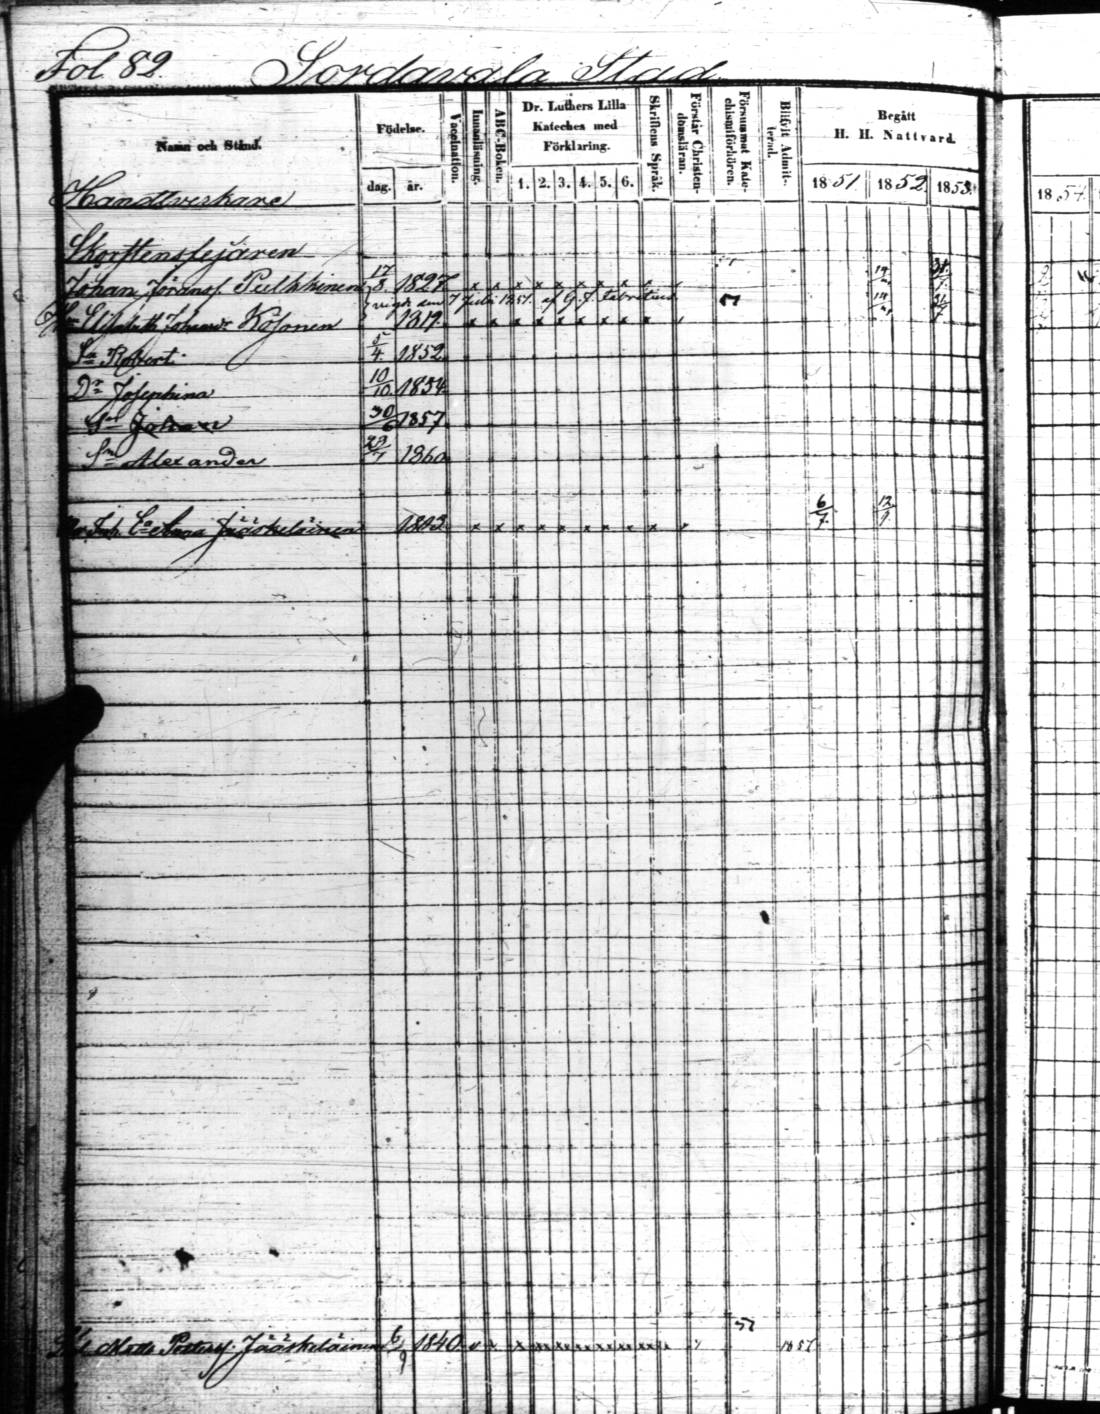 Fol. 82. Sordavala Stad
Namn och Stånd.
Födelse.
dag. år.
Vaccination.
Innanläsning.
ABC-Boken.
Dr. Luthers Lilla
Kateches med
Förklaring.
1. 2. 3. 4. 5. 6.
Skriftens Språk.
Förstår Christen-
domsläran.
Försummat Kate-
chismiförhören.
Blifvit Admit-
terad.
Begått
H. H. Nattvard.
1851. 1852. 1853.
1854.
Handtverkare
Skorstensfejaren
Johan Göransf. Pulkkinen 17/8 1827. x x x x x x x x
vigde den 7 Juli 1851. af G. F.
Elisabeth Johansdr Kosonen 1819. x x x x x x x x x
Sn Robert. 5/4 1852
Dr Josephina 10/10 1854
Sn Johan 30/6 1857
Sn Alexander 29/7 1860
Anna Jääskeläinen 1803 x x x x x x x x x 6/7 12/9
57
Matts Petterss. Jääskeläinen 6/9 1840 1857